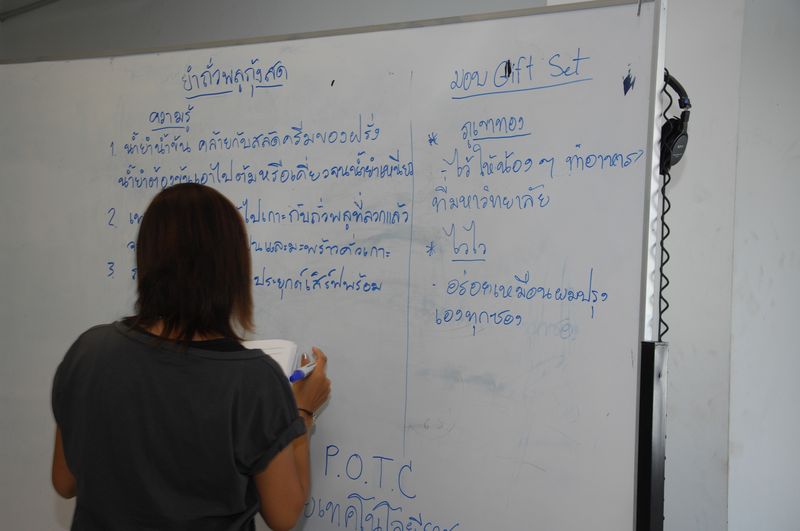 ยำถั่วพลูกุ้งสด
ความรู้
1. น้ำยำน้ำข้น คล้ายกับสลัดครีมของฝรั่ง
น้ำยำต้องข้นเอาไปต้มหรือเคี่ยวจนน้ำยำเหนียว
2. ไปเกาะกับถั่วพลูที่ลวกแล้ว
และมะพร้าวคั่วเกาะ
3. ประยุกต์เสิร์ฟพร้อม
มอบ Gift Set
* ภูเขาทอง
- ไว้ให้น้องๆ ทำอาหาร
ที่มหาวิทยาลัย
* ไวไว
- อร่อยเหมือนผมปรุง
เองทุกซอง
P.O.T.C
เทคโนโลยี